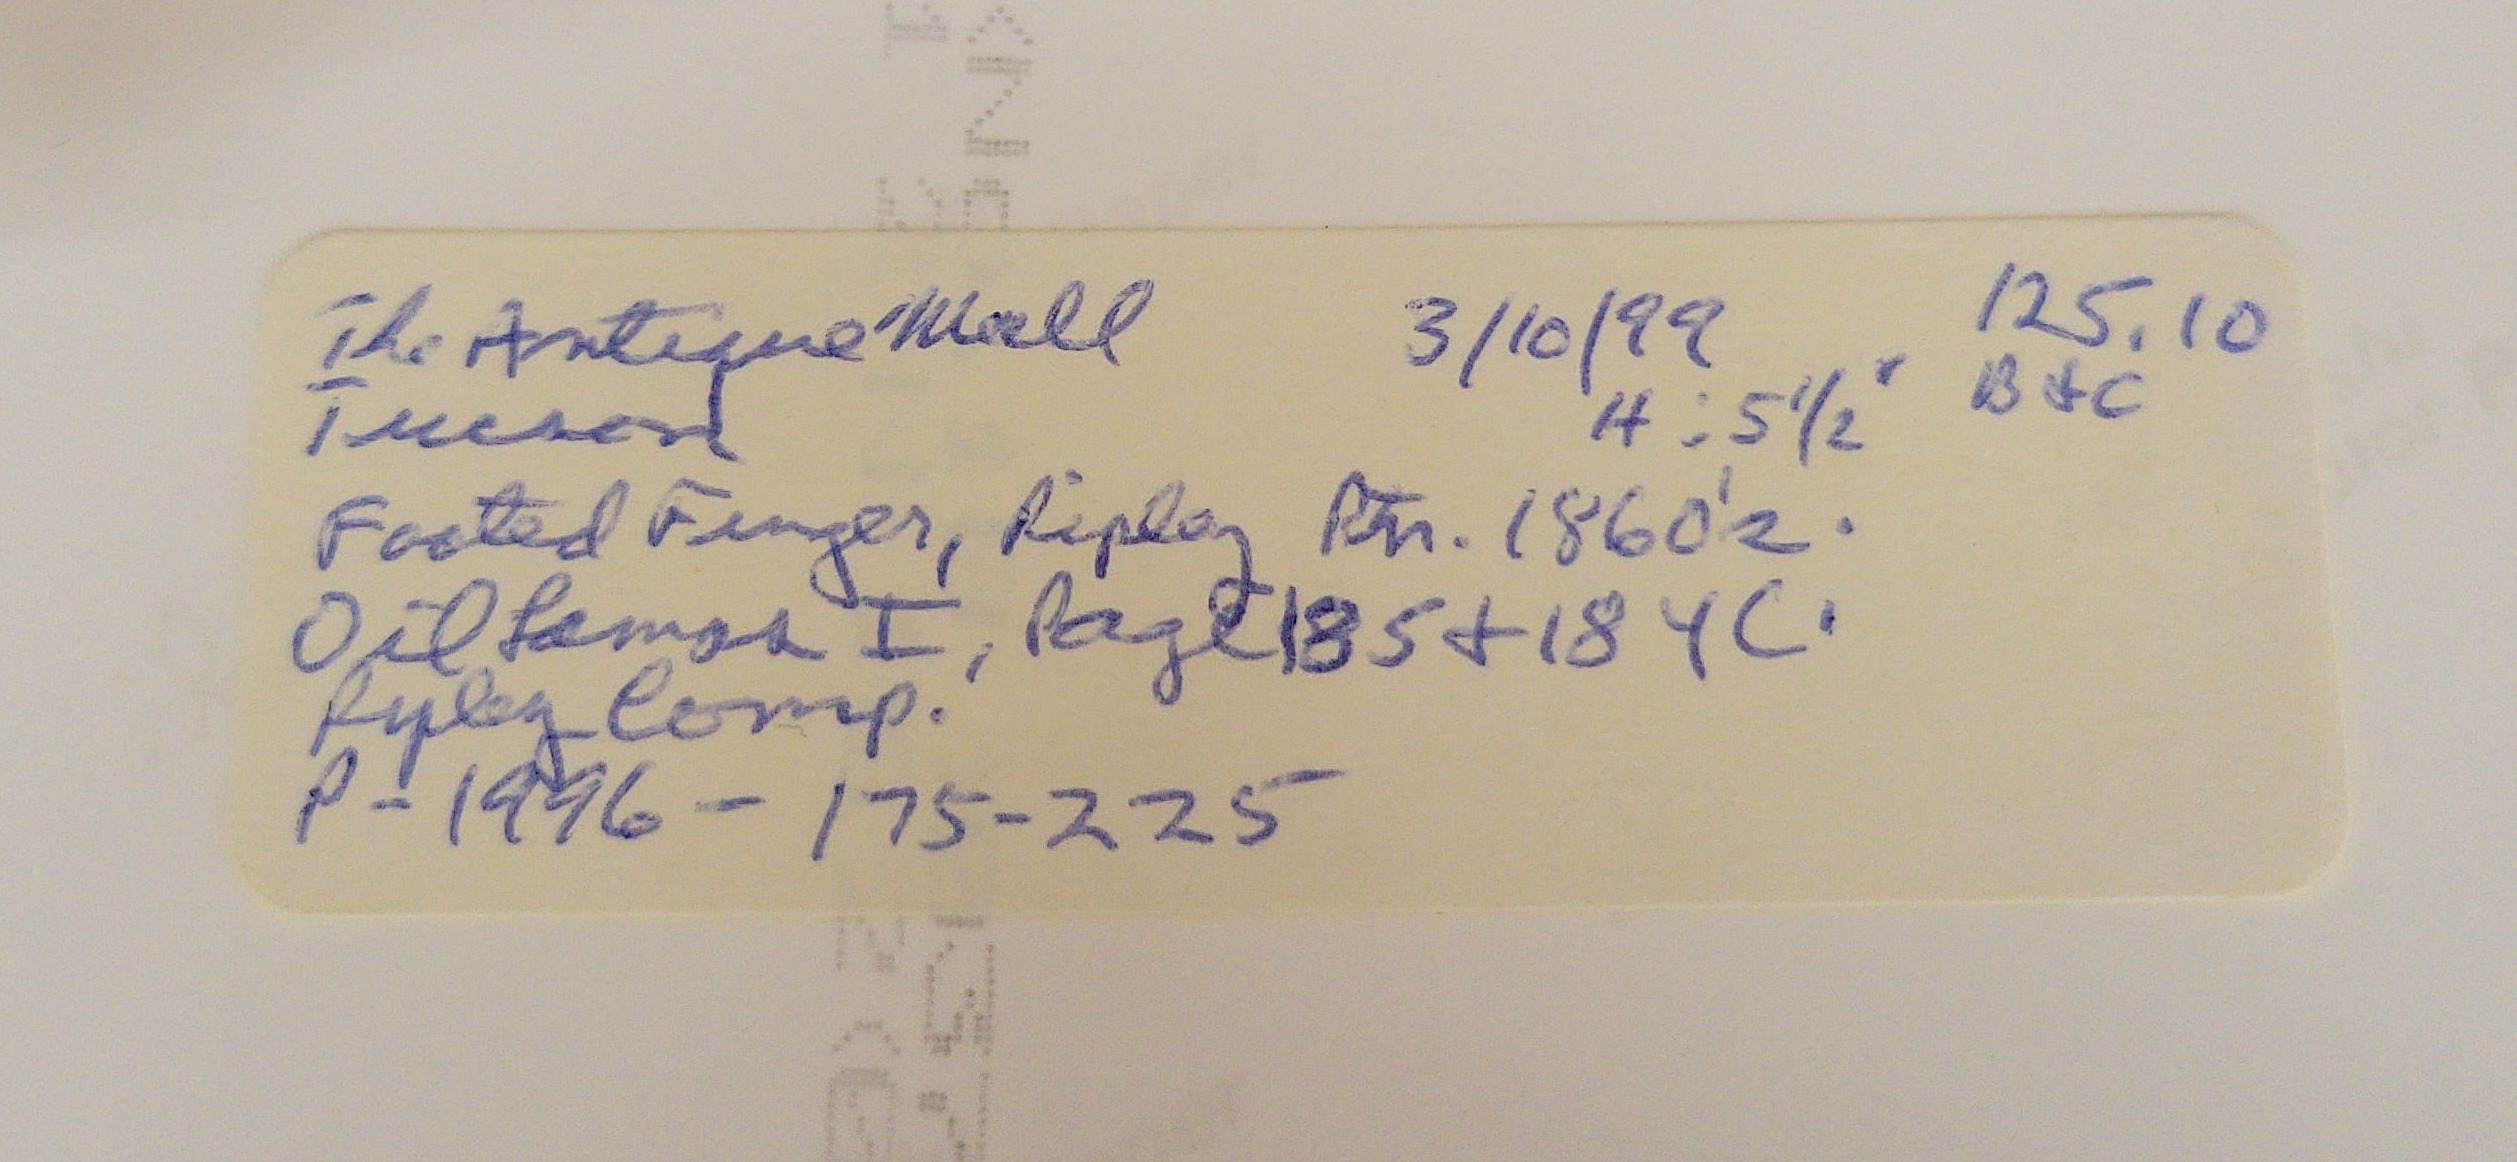 The Antique Mall 3/10/99 125.10
Tucson H: 5 1/2" B & C
Footed Finger, Ripley Ptn. 1860's.
Oil Lamps I, Page 185 & 184 C.
Ripley Comp.
P - 1996 - 175-225